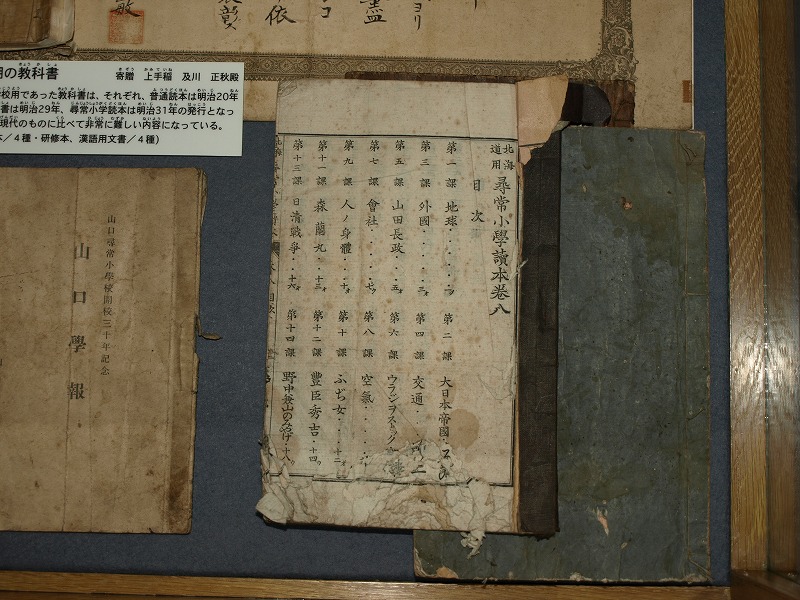 の教科書
寄贈 上手稲 及川 正秋殿
校用であった教科書は、それぞれ、普通読本は明治20年
書は明治29年、尋常小学読本は明治31年の発行となっ
現代のものに比べて非常に難しい内容になっている。
本／４種・研修本、漢語用文書／４種)
北海道用 尋常小學讀本卷八
目次
第一課 地球
第二課 大日本帝國
第三課 外國
第四課 交通
第五課 山田長政
第六課 ウラジヲストック
第七課 會社
第八課 空氣
第九課 人ノ身體
第十課 ふぢ女
第十一課 森蘭丸
第十二課 豐臣秀吉
第十三課 日清戰爭
第十四課 野中兼山のみやげ
山口尋常小學校開校三十年記念
山口學報